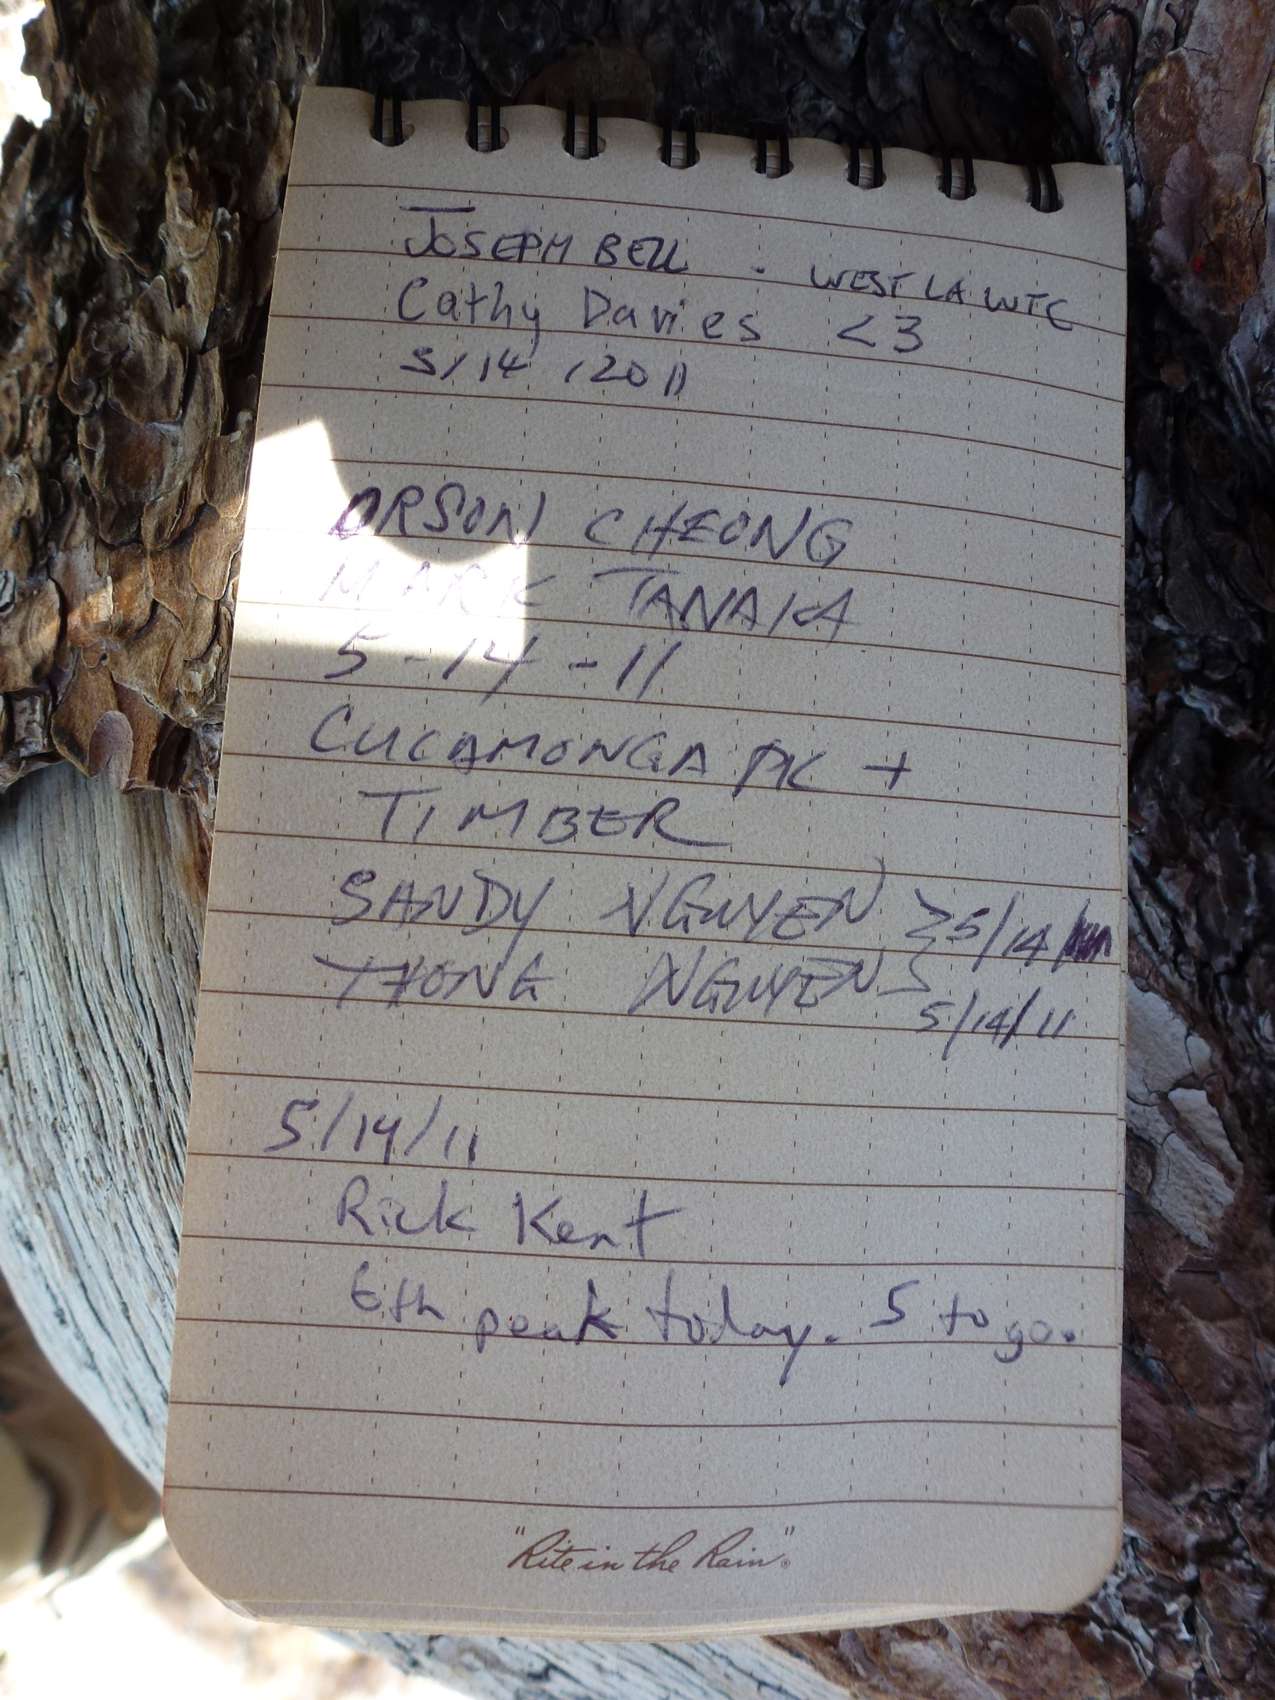 JOSEPH BELL - WEST LA WTC
Cathy Davies <3
5/14/2011
ORSON CHEONG
MARK TANAKA
5-14-11
CUCAMONGA PK +
TIMBER
SANDY NGUYEN > 5/14/
THONG NGUYEN
5/14/11
5/14/11
Rick Kent
6th peak today. 5 to go.
"Rite in the Rain"®